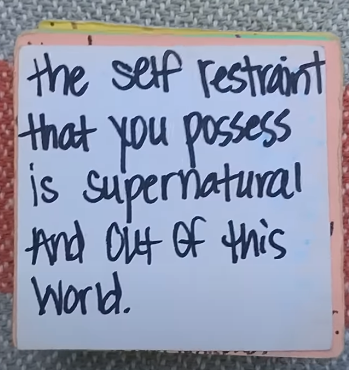 the self restraint
that you possess
is supernatural
And Out Of this
World.